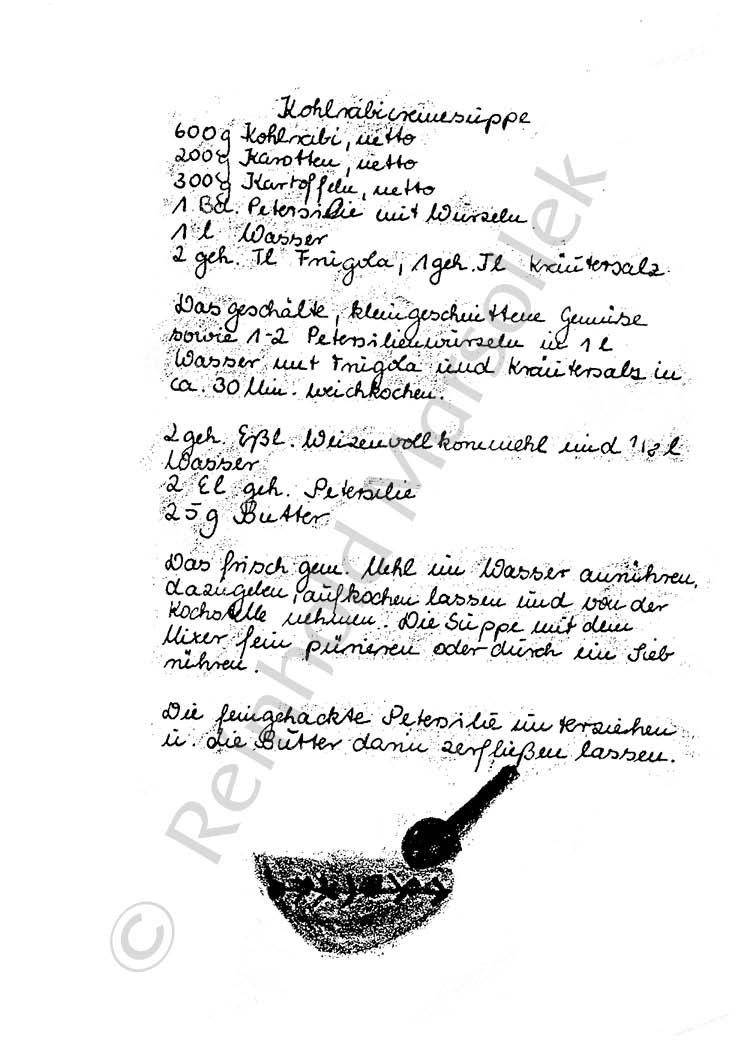 Kohlrabicremesuppe
600g Kohlrabi, netto
200g Karotten, netto
300g Kartoffeln, netto
1 Bd. Petersilie mit Wurzeln
1 l Wasser
2 geh. Tl Frugola, 1 geh. Tl Kräutersalz
Das geschälte, kleingeschnittene Gemüse
sowie 1-2 Petersilienwurzeln in 1 l
Wasser mit Frugola und Kräutersalz in
ca. 30 Min. weichkochen.
2 geh. Eßl. Weizenvollkornmehl und 1/8 l
Wasser
2 El geh. Petersilie
25g Butter
Das frisch gem. Mehl im Wasser anrühren,
dazugeben, aufkochen lassen und von der
Kochstelle nehmen. Die Suppe mit dem
Mixer fein pürieren oder durch ein Sieb
rühren.
Die feingehackte Petersilie unterziehen
u. die Butter darin zerfließen lassen.
© Reinhold Marsollek